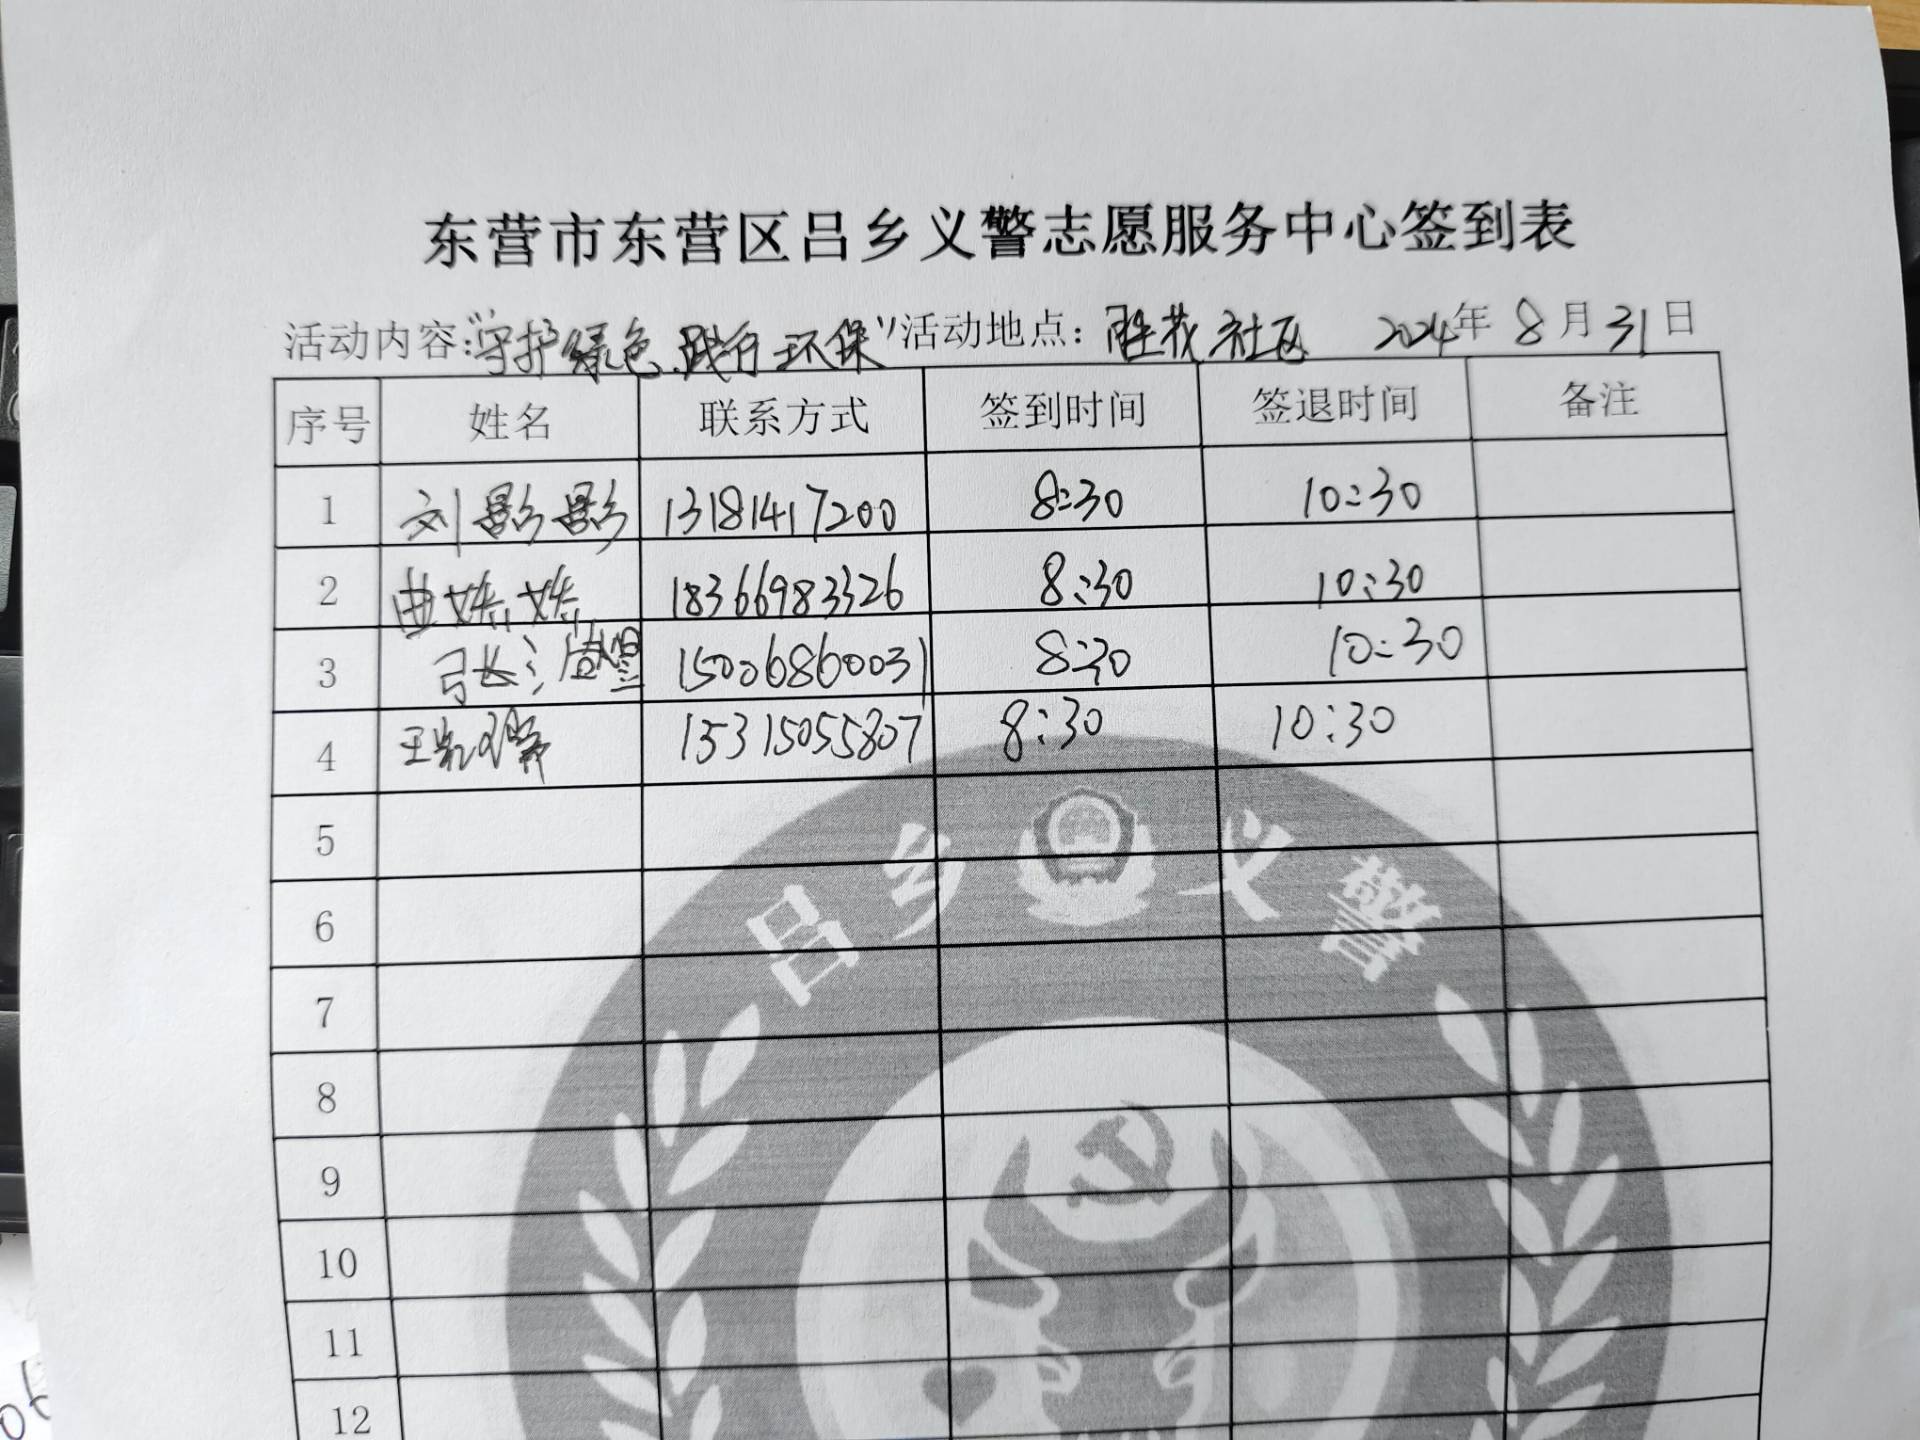 东营市东营区吕乡义警志愿服务中心签到表
活动内容:“守护绿色,践行环保”活动地点:胜花社区 2024年8月31日
序号 姓名 联系方式 签到时间 签退时间 备注
1 刘影影 13181417200 8:30 10:30
2 曲姝姝 18366983326 8:30 10:30
3 15006860031 8:30 10:30
4 15315055807 8:30 10:30
5
6
7
8
9
10
11
12
吕乡义警